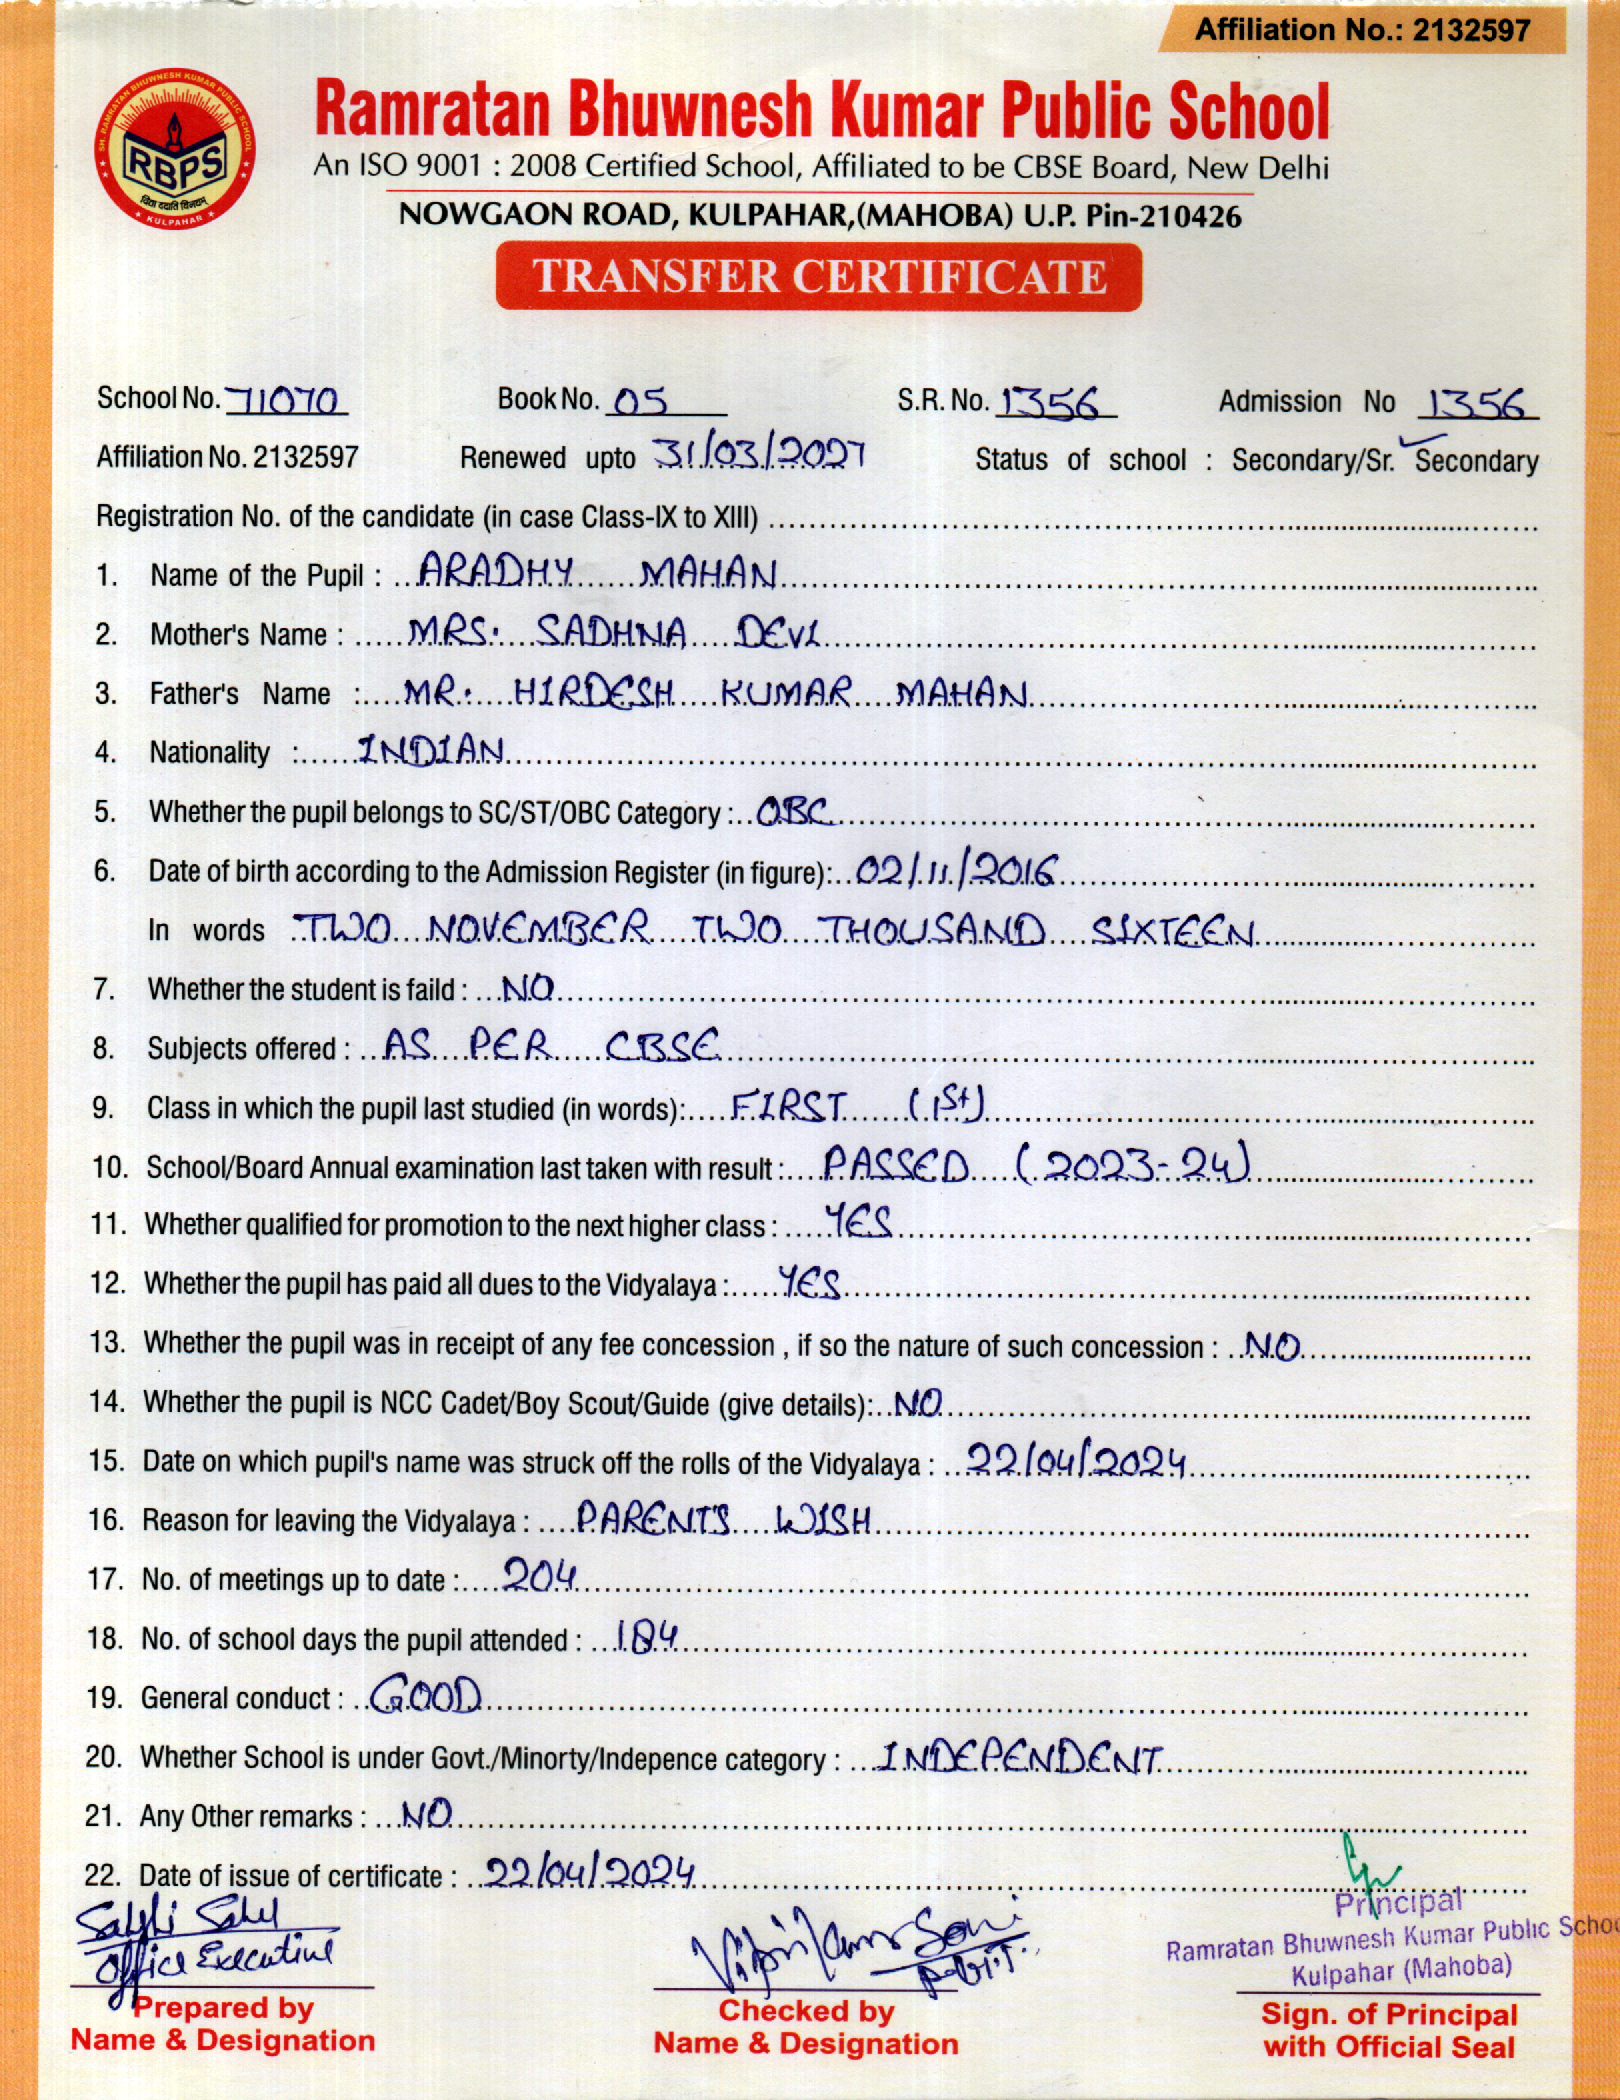 Affiliation No.: 2132597
SH. RAMRATAN BHUWNESH KUMAR PUBLIC SCHOOL
RBPS
विद्या ददाति विनयम्
KULPAHAR
Ramratan Bhuwnesh Kumar Public School
An ISO 9001 : 2008 Certified School, Affiliated to be CBSE Board, New Delhi
NOWGAON ROAD, KULPAHAR,(MAHOBA) U.P. Pin-210426
TRANSFER CERTIFICATE
School No. 71070 Book No. 05 S.R. No. 1356 Admission No 1356
Affiliation No. 2132597 Renewed upto 31/03/2027 Status of school : Secondary/Sr. Secondary
Registration No. of the candidate (in case Class-IX to XIII)
1. Name of the Pupil : ARADHY MAHAN
2. Mother's Name : MRS. SADHNA DEVI
3. Father's Name : MR. HIRDESH KUMAR MAHAN
4. Nationality : INDIAN
5. Whether the pupil belongs to SC/ST/OBC Category : OBC
6. Date of birth according to the Admission Register (in figure): 02/11/2016
In words TWO NOVEMBER TWO THOUSAND SIXTEEN
7. Whether the student is faild : NO
8. Subjects offered : AS PER CBSE
9. Class in which the pupil last studied (in words): FIRST (1st)
10. School/Board Annual examination last taken with result : PASSED (2023-24)
11. Whether qualified for promotion to the next higher class : YES
12. Whether the pupil has paid all dues to the Vidyalaya : YES
13. Whether the pupil was in receipt of any fee concession , if so the nature of such concession : NO
14. Whether the pupil is NCC Cadet/Boy Scout/Guide (give details): NO
15. Date on which pupil's name was struck off the rolls of the Vidyalaya : 22/04/2024
16. Reason for leaving the Vidyalaya : PARENT'S WISH
17. No. of meetings up to date : 204
18. No. of school days the pupil attended : 184
19. General conduct : GOOD
20. Whether School is under Govt./Minorty/Indepence category : INDEPENDENT
21. Any Other remarks : NO
22. Date of issue of certificate : 22/04/2024
Office Executive
Soni
Principal
Ramratan Bhuwnesh Kumar Public Schoo
Kulpahar (Mahoba)
Prepared by Checked by Sign. of Principal
Name & Designation Name & Designation with Official Seal